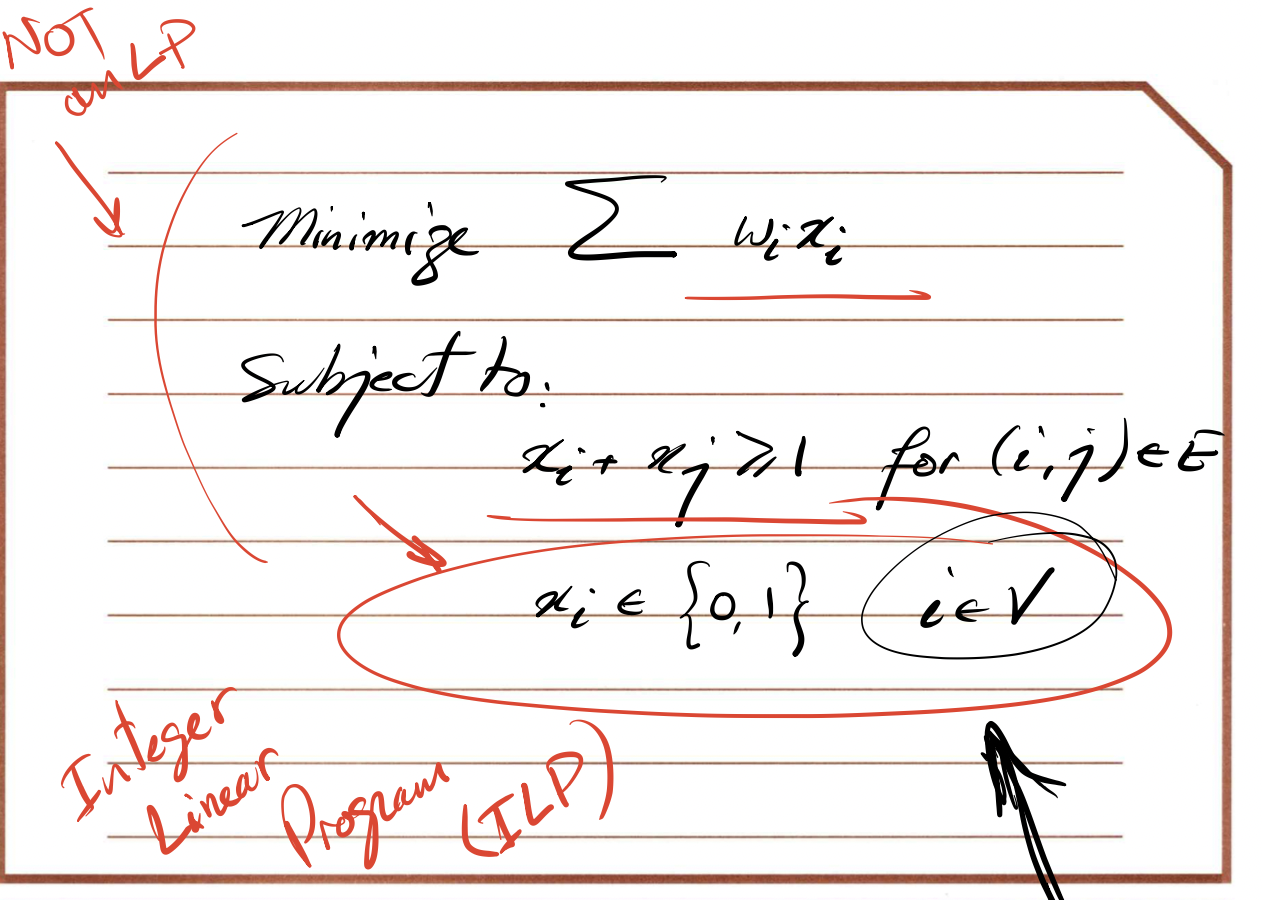 NOT
an LP
Minimize ∑ wᵢxᵢ
Subject to:
xᵢ + xⱼ ⩾ 1 for (i,j) ∈ E
xᵢ ∈ {0,1} i ∈ V
Integer
Linear
Program
(ILP)